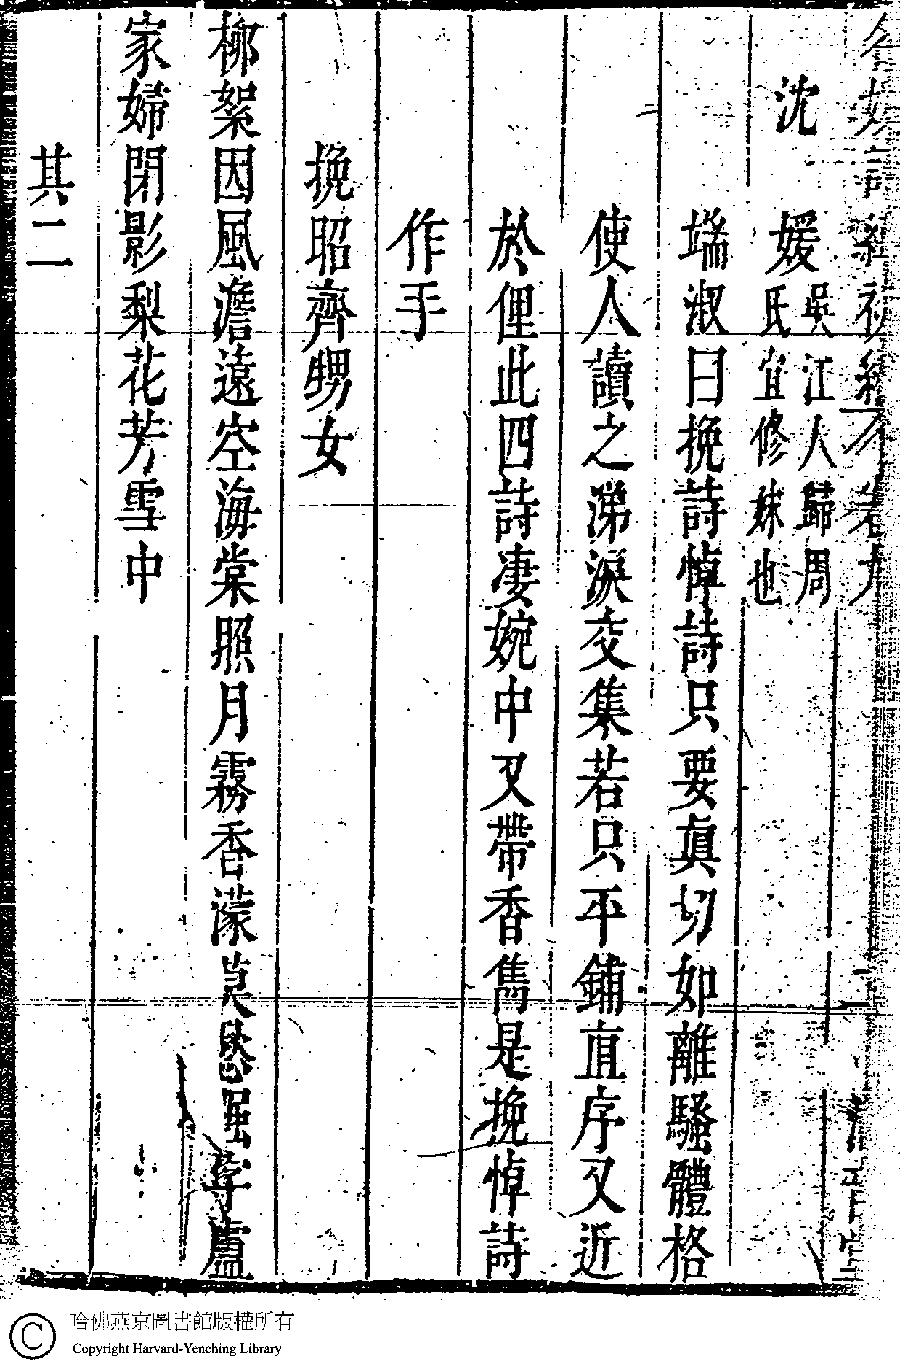 名媛詩緯初編 卷九
沈 媛 吳江人歸周
氏宜修妹也
端淑曰挽詩悼詩只要真切如離騷體格
使人讀之涕淚交集若只平鋪直序又近
於俚此四詩凄婉中又帶香雋是挽悼詩
作手
挽昭齊甥女
柳絮因風澹遠空海棠照月霧香濛莫愁 字盧
家婦閉影梨花芳雪中
其二
哈佛燕京圖書館版權所有
Copyright Harvard-Yenching Library